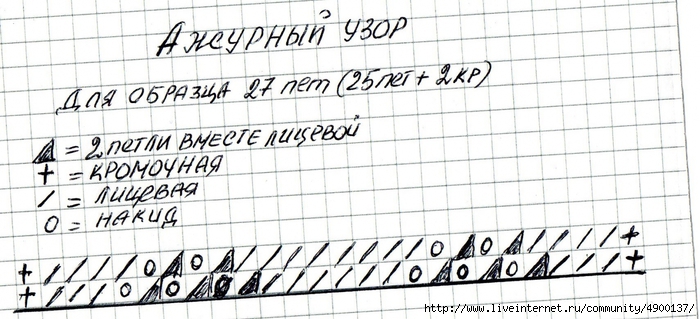 Ажурный узор
Для образца 27 пет (25 пет + 2 кр)
◢ = 2 петли вместе лицевой
+ = кромочная
/ = лицевая
О = накид
+ / / / / О ◢ О ◢ / / / / / / / / / О ◢ О ◢ / / / / +
+ / / / О ◢ О ◢ О ◢ / / / / / / / О ◢ О ◢ О ◢ / / / +
http://www.liveinternet.ru/community/4900137/